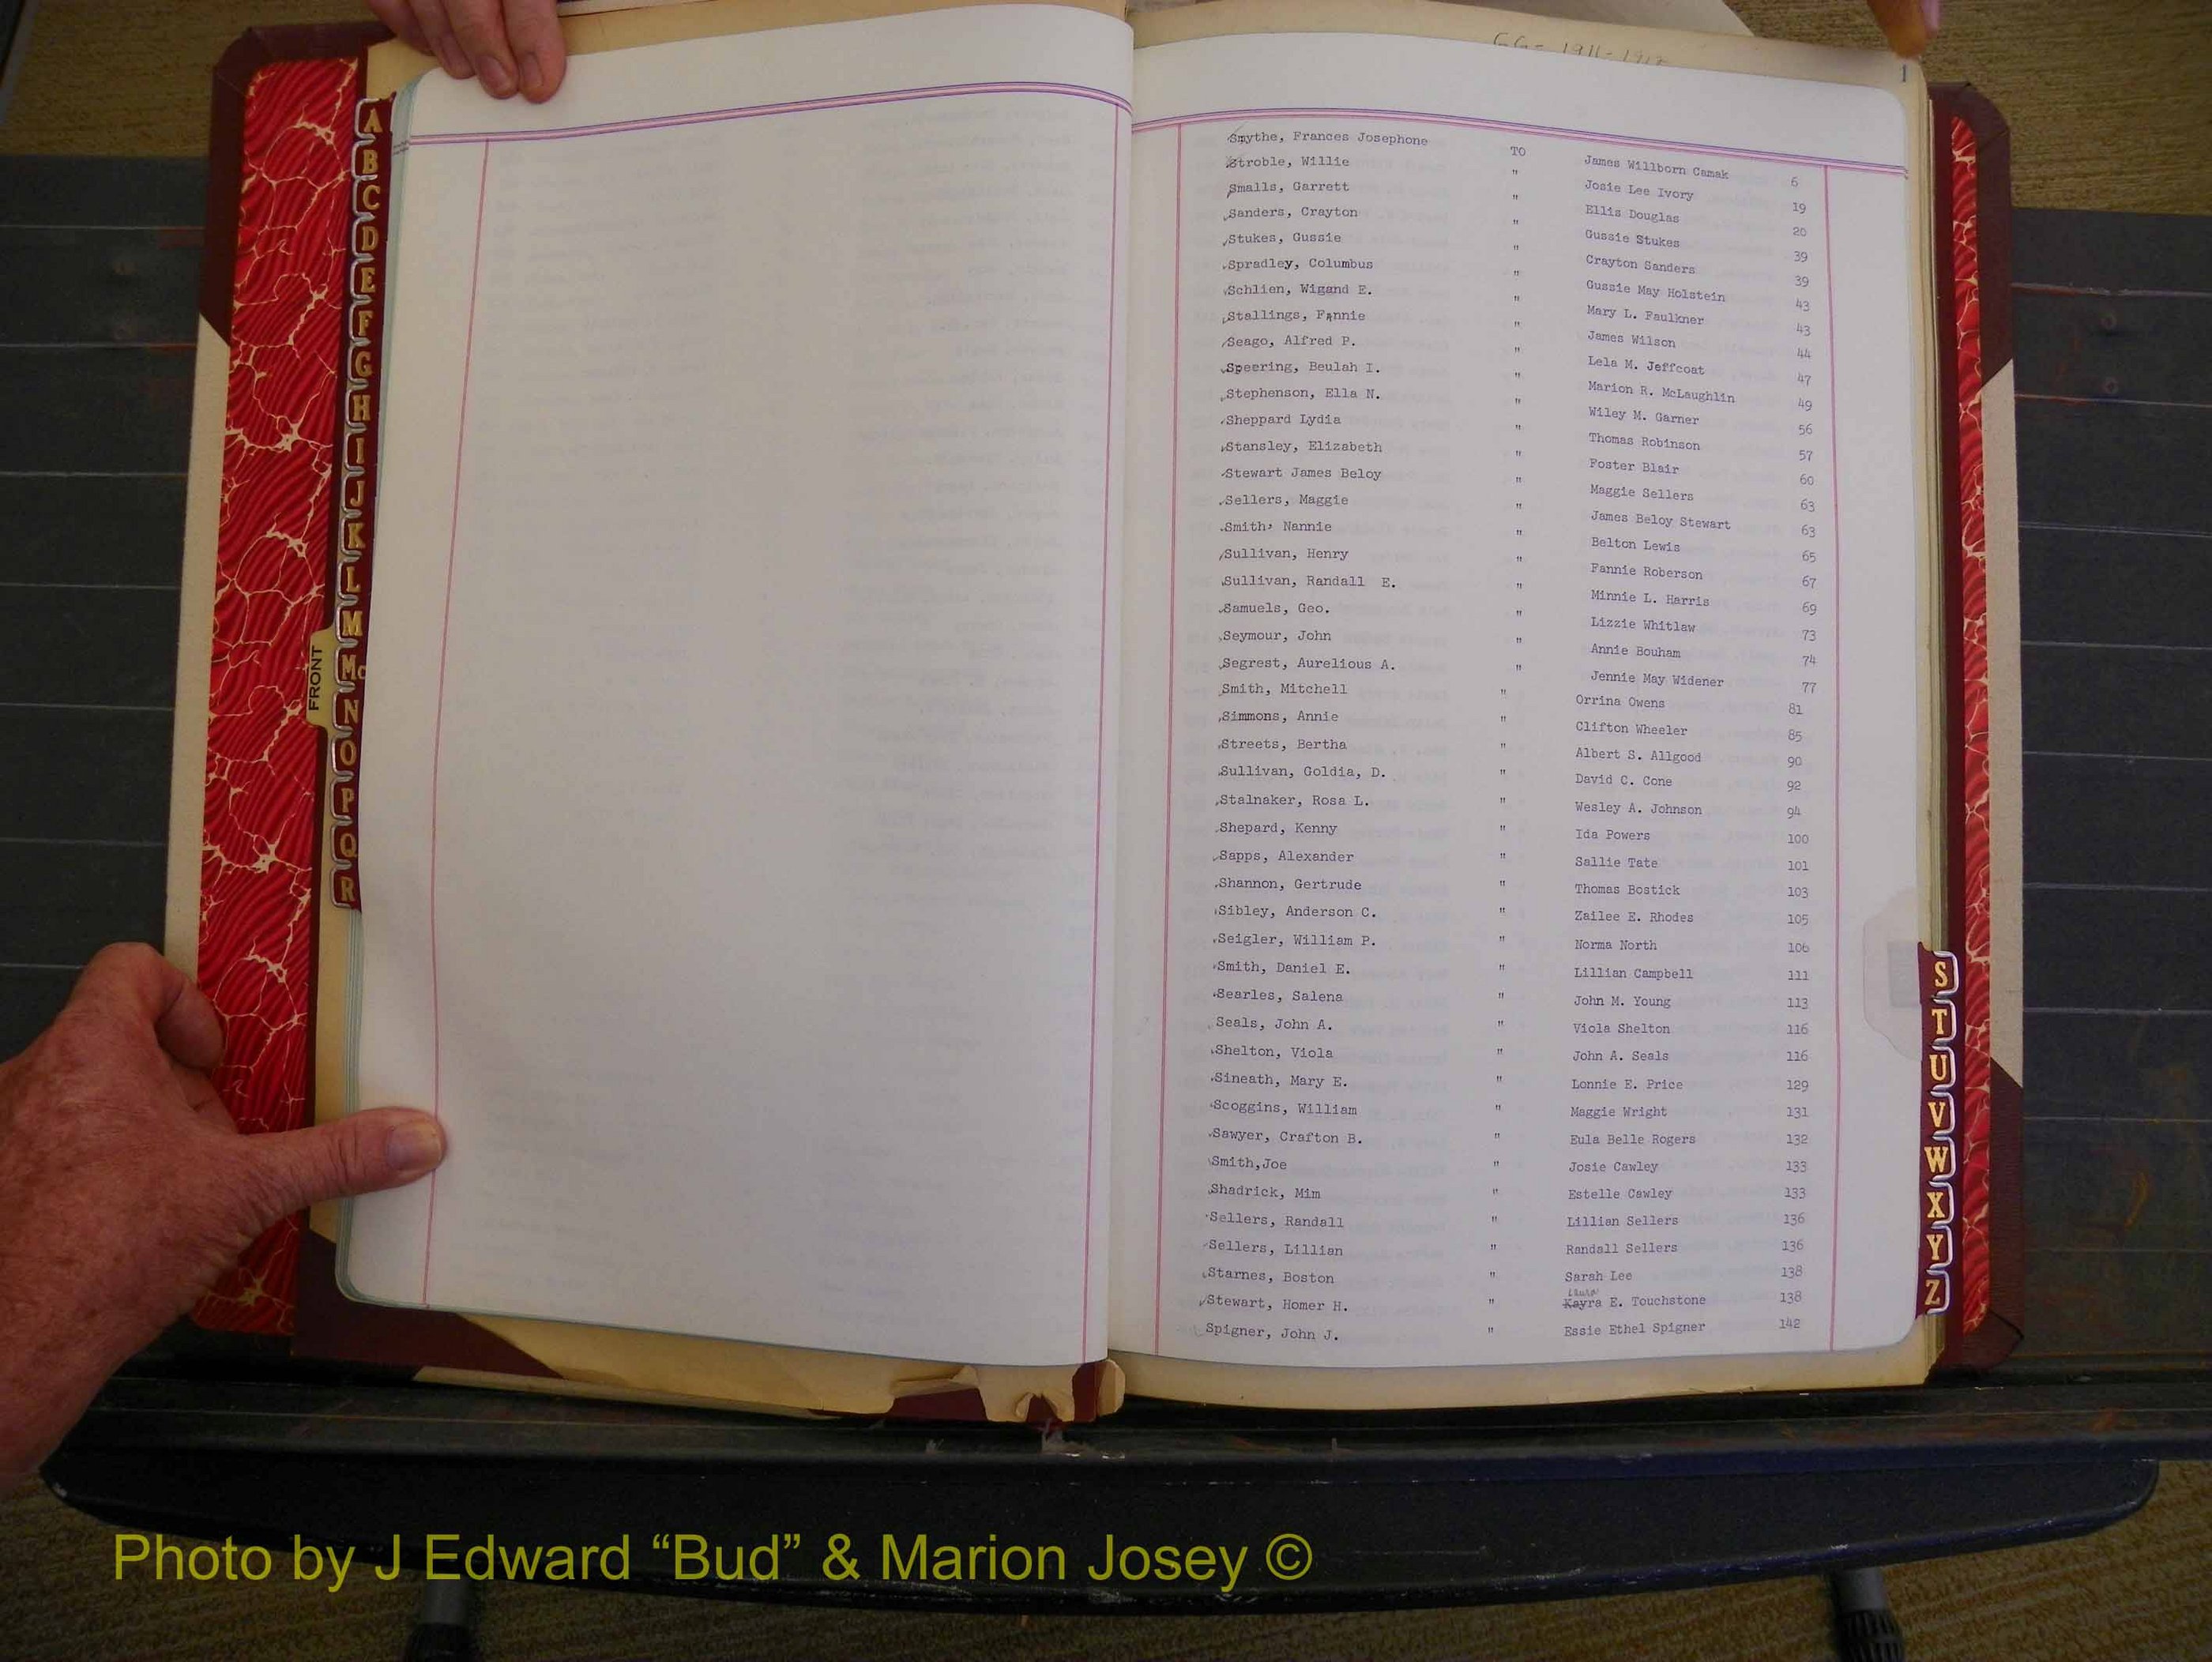 GG - 1911-1912
1
Smythe, Frances Josephone TO James Willborn Camak 6
Stroble, Willie " Josie Lee Ivory 19
Smalls, Garrett " Ellis Douglas 20
Sanders, Crayton " Gussie Stukes 39
Stukes, Gussie " Crayton Sanders 39
Spradley, Columbus " Gussie May Holstein 43
Schlien, Wigand E. " Mary L. Faulkner 43
Stallings, Fannie " James Wilson 44
Seago, Alfred P. " Lela M. Jeffcoat 47
Speering, Beulah I. " Marion R. McLaughlin 49
Stephenson, Ella N. " Wiley M. Garner 56
Sheppard Lydia " Thomas Robinson 57
Stansley, Elizabeth " Foster Blair 60
Stewart James Beloy " Maggie Sellers 63
Sellers, Maggie " James Beloy Stewart 63
Smith, Nannie " Belton Lewis 65
Sullivan, Henry " Fannie Roberson 67
Sullivan, Randall E. " Minnie L. Harris 69
Samuels, Geo. " Lizzie Whitlaw 73
Seymour, John " Annie Bouham 74
Segrest, Aurelious A. " Jennie May Widener 77
Smith, Mitchell " Orrina Owens 81
Simmons, Annie " Clifton Wheeler 85
Streets, Bertha " Albert S. Allgood 90
Sullivan, Goldia, D. " David C. Cone 92
Stalnaker, Rosa L. " Wesley A. Johnson 94
Shepard, Kenny " Ida Powers 100
Sapps, Alexander " Sallie Tate 101
Shannon, Gertrude " Thomas Bostick 103
Sibley, Anderson C. " Zailee E. Rhodes 105
Seigler, William P. " Norma North 106
Smith, Daniel E. " Lillian Campbell 111
Searles, Salena " John M. Young 113
Seals, John A. " Viola Shelton 116
Shelton, Viola " John A. Seals 116
Sineath, Mary E. " Lonnie E. Price 129
Scoggins, William " Maggie Wright 131
Sawyer, Crafton B. " Eula Belle Rogers 132
Smith,Joe " Josie Cawley 133
Shadrick, Mim " Estelle Cawley 133
Sellers, Randall " Lillian Sellers 136
Sellers, Lillian " Randall Sellers 136
Starnes, Boston " Sarah Lee 138
Laura
Stewart, Homer H. " Kayra E. Touchstone 138
Spigner, John J. " Essie Ethel Spigner 142
A
B
C
D
E
F
G
H
I
J
K
L
M
Mc
N
O
P
Q
R
FRONT
S
T
U
V
W
X
Y
Z
Photo by J Edward “Bud” & Marion Josey ©